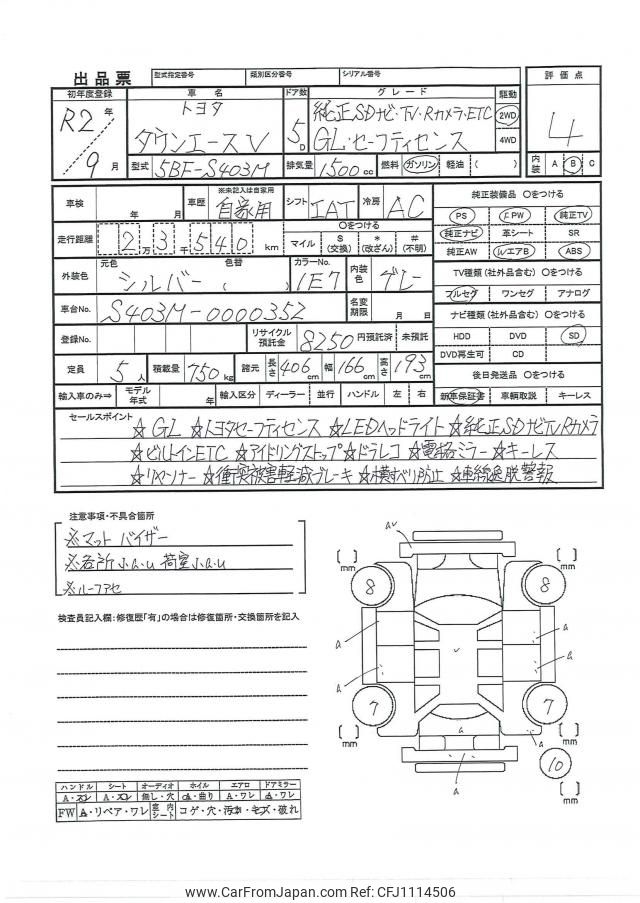 出品票 型式指定番号 類別区分番号 シリアル番号
初年度登録 車名 ドア数 グレード 駆動 評価点
R2年 トヨタ 純正SDナビ・TV・Rカメラ・ETC 2WD 4
タウンエースV 5D GL・セーフティセンス 4WD
9月 型式 5BF-S403M 排気量 1500cc 燃料 ガソリン・軽油( ) 内装 A B C
車検 年 月 車歴 ※未記入は自家用 自家用 シフト IAT 冷房 AC 純正装備品 ○をつける
PS PW 純正TV
走行距離 2万3千540km ○をつける マイル $(交換) *(改ざん) #(不明) 純正ナビ 革シート SR
純正AW エアB ABS
外装色 元色 シルバー 色替 ( ) カラーNo. 1E7 内装色 グレー TV種類(社外品含む) ○をつける
フルセグ ワンセグ アナログ
車台No. S403M-0000352 名変期限 月 日 ナビ種類(社外品含む) ○をつける
登録No. リサイクル預託金 8250円預託済 未預託 HDD DVD SD
DVD再生可 CD
定員 5人 積載量 750kg 諸元 長さ 406cm 幅 166cm 高さ 193cm 後日発送品 ○をつける
輸入車のみ⇒ モデル年式 輸入区分 ディーラー・並行 ハンドル 左・右 新車保証書 車輌取説 キーレス
セールスポイント
☆GL ☆トヨタセーフティセンス ☆LEDヘッドライト ☆純正SDナビTVRカメラ
☆ビルトインETC ☆アイドリングストップ ☆ドラレコ ☆電格ミラー ☆キーレス
☆リヤソナー ☆衝突被害軽減ブレーキ ☆横すべり防止 ☆車線逸脱警報
注意事項・不具合箇所
※マット バイザー
※各所小a・u 荷室小a・u
※ルーフアセ
検査員記入欄:修復歴「有」の場合は修復箇所・交換箇所を記入
av
[ ]mm [ ]mm
8 8
a a
v
a a
7 7
a
[ ]mm [ ]mm
a 10
a [ ]mm
ハンドル シート オーディオ ホイル エアロ ドアミラー
A・スレ A・スレ 無し・穴 A・曲り A・ワレ A・ワレ
FW A・リペア・ワレ 室内シート コゲ・穴・汚れ・キズ・破れ
www.CarFromJapan.com Ref: CFJ1114506